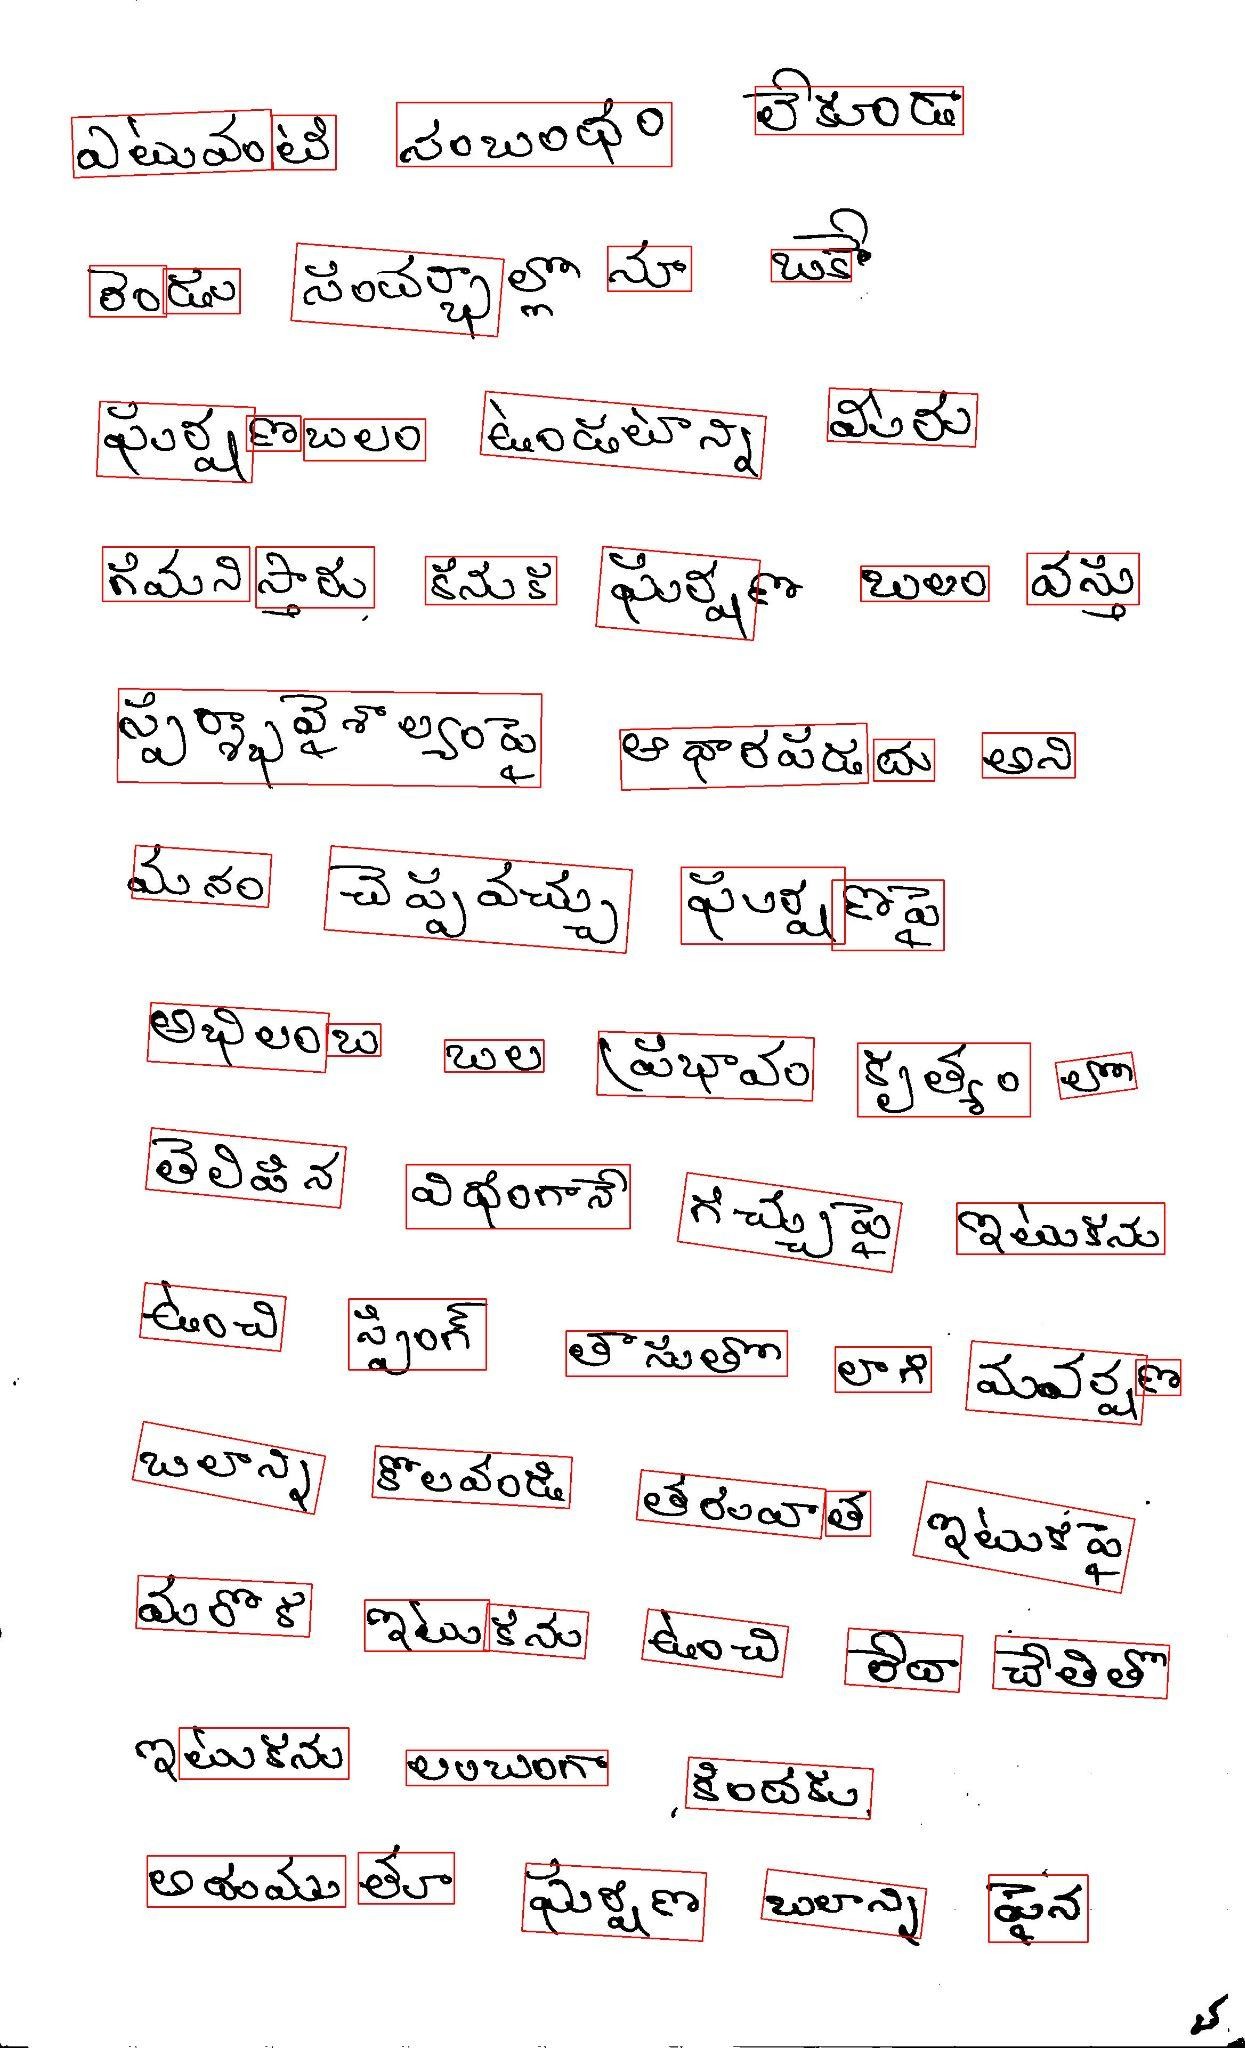 ఎటువంటి సంబంధం లేకుండా
రెండు సందర్భాల్లొనూ ఒకే
ఘర్షణబలం ఉండటాన్ని మీరు
గమనిస్తారు కనుక ఘర్షణ బలం వస్తు
స్పర్శావైశాల్యంపై ఆధారపడదు అని
మనం చెప్పవచ్చు ఘర్షణపై
అభిలంబ బల ప్రభావం కృత్యం లో
తెలిపిన విధంగానే గచ్చుపై ఇటుకను
ఉంచి స్ప్రింగ్ త్రాసుతో లాగి ఘర్షణ
బలాన్ని కొలవండి తరువాత ఇటుకపై
మరొక ఇటుకను ఉంచి లేదా చేతితో
ఇటుకను లంబంగా కిందకు
అదుముతూ ఘర్షణ బలాన్ని పైన